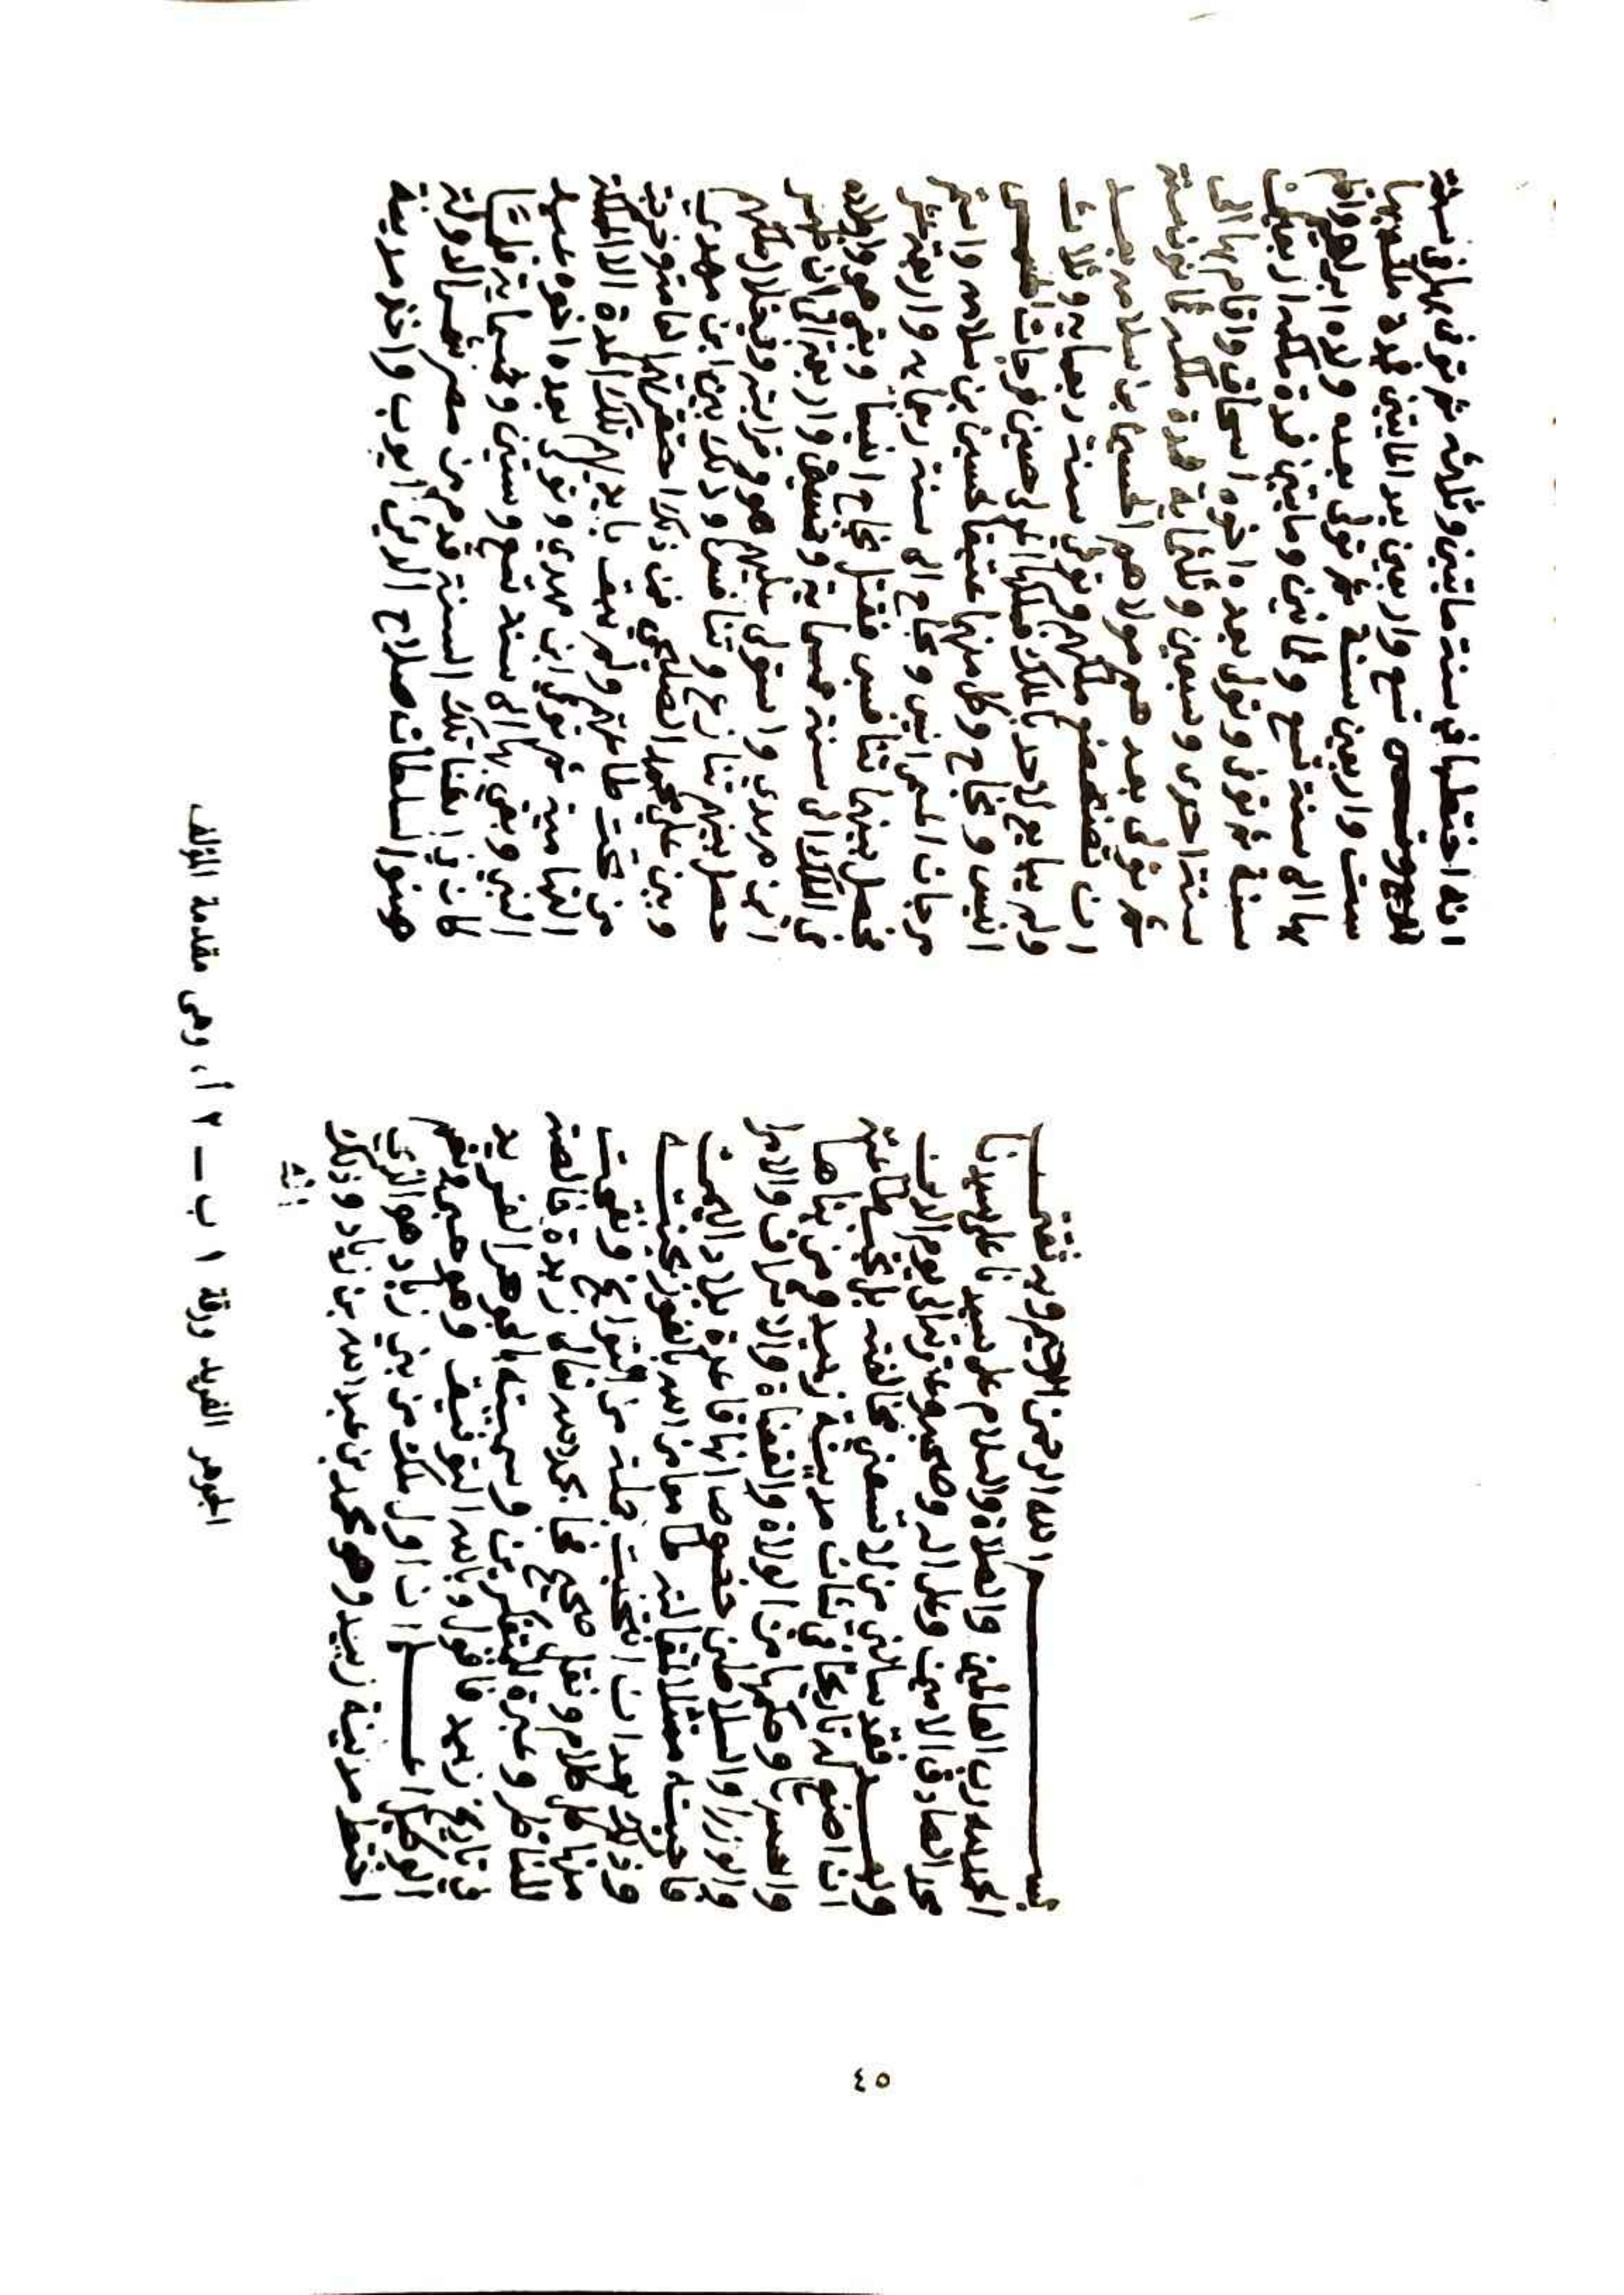 بسم الله الرحمن الرحيم وبه ثقتي
الحمد لله رب العالمين والصلاة والسلام على سيدنا على سيدنا
محمد الصادق الامين وعلى اله وصحبه وعترته الى يوم الدين
وبعد فقد سالني من لا تسعني مخالفته بل تجب طاعته
ان اصنع له تاريخا في شان مدينة زبيد ومن بناها
واسسها وحكمها من الولاة والقضاة والاشراف والامرا
والوزرا والسلاطين خصوصا انها قاعدة بلاد اليمن
فاجبته ممتثلا لمقالته طامعا من الله بالفوز بجنته
وذلك بعد ان انتخبت جملة من التواريخ ونقيت
منها كل كلام ونقل صحيح فجا بحمد الله تعالى زبدة خالصة
للناظر وعبرة للمتفكرين وسميته بالجوهر الفريد
في تاريخ زبيد فاقول وبالله التوفيق وهو حسبي ونعم
الوكيل اعلم ان اول ملك من بني زياد هو الذي
اختط مدينة زبيد وهو محمد بن عبد الله بن زياد وذلك
انه
انه اختطها في سنة مايتين وثلاثه ثم توفى بها في سنة
خمس واربعين بعد المايتين فمدة ملكه بها
ست واربعين سنة ثم تولى بعده ولده ابراهيم واقام
بها الى سنة تسع وثمانين ومايتين فمدة ملكه اربعين
سنة ثم توفى وتولى بعده اخوه اسحاق واقام بها الى
سنة احدى وسبعين وثلثماية فمدة ملكه ثمانون سنة
ثم تولى بعدهم مولاهم الحسين بن سلامه بعد
ان تضعضع ملكهم وتوفى سنة اربعمايه وثلاث
ولم يبايع لاحد بالملك فملكها المولى حسين مرجان
انيس ونجاح وكل منهما عتيقا لحسين بن سلامه واستمر
مرجان الى سنة اربعمايه واربعة عشر
فحصل بينهما تنافس فقتل نجاح انيسا وبقي هو واولاده
في الملك الى سنة خمسماية وخمسين واربعة الى ان ظهر
ابن مهدي واستولى عليهم هو وقرابته وفي خلال ملكهم
حصل بينهم تنازع وتنافس وذلك بين ابن مهدي
وبين علي محمد الصليحي
من تحت طاعتهم ولم يبق بايديهم تلك المدة الا المملكة
ثم توفى ابن مهدي وتولى بعده اخوه عبد
النبي وبقي بها الى سنة تسع وستين وخمسماية فلما
كان في اثناء تلك السنة قدم من مصر شمس الدولة
صنو السلطان صلاح الدين ايوب واخذ مدينة
الجوهر الفريد ورقة ١ ب – ٢ أ، وهى مقدمة المؤلف
٤٥